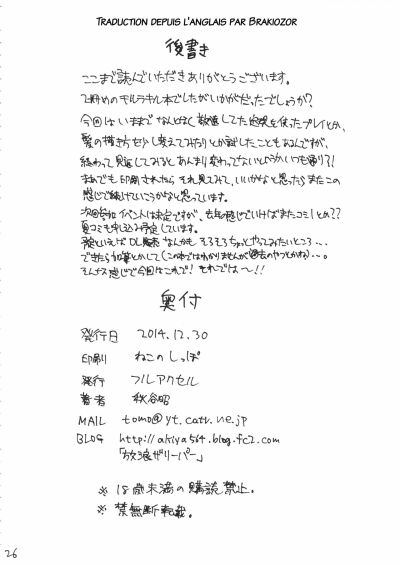 TRADUCTION DEPUIS L'ANGLAIS PAR BRAKIOZOR
後書き
ここまで読んでいただきありがとうございます。
2冊めのキルラキル本でしたがいかがだったでしょうか?
今回はいままでなんとなく敬遠してた を使ったプレイとか、
髪の描き方を少し変えてみたりとか試したこともあるんですが、
終わって見返してみるとあんまり変わってないというかいつも通り?!
まぁでも印刷されたら それ見てみて、いいかなと思ったらまたこの
感じで続けていこうかなと思っています。
次回参加イベントは未定ですが、去年の感じでいけばまたコミ1とか??
夏コミも申し込み予定しています。
予定といえばDL販売なんかもそろそろちょっとやってみたいところ・・・
できたら加筆とかして(この本ではわかりませんが過去のやつとかね)・・・。
そんなな感じで今回はこれで! それでは~!!
奥付
発行日 2014.12.30
印刷 ねこのしっぽ
発行 フルアクセル
著者 秋谷昭
MAIL tomo@yt.catv.ne.jp
BLOG http://akiya564.blog.fc2.com
「放浪ガリーパー」
※ 18歳未満の購読禁止。
※ 禁無断転載。
26